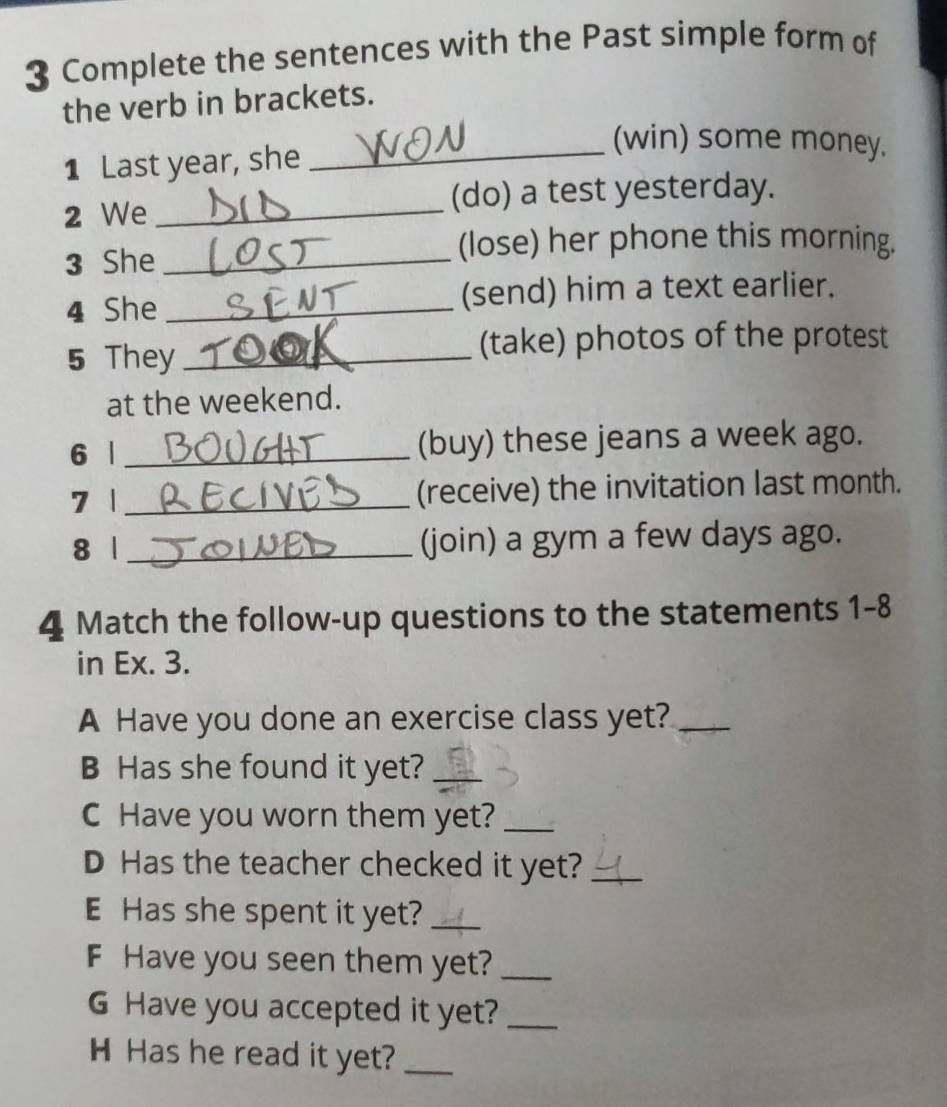 3 Complete the sentences with the Past simple form of
the verb in brackets.
1 Last year, she WON (win) some money.
2 We DID (do) a test yesterday.
3 She LOST (lose) her phone this morning.
4 She SENT (send) him a text earlier.
5 They TOOK (take) photos of the protest
at the weekend.
6 I BOUGHT (buy) these jeans a week ago.
7 I RECIVED (receive) the invitation last month.
8 I JOINED (join) a gym a few days ago.
4 Match the follow-up questions to the statements 1–8
in Ex. 3.
A Have you done an exercise class yet? ___
B Has she found it yet? ___ 3
C Have you worn them yet? ___
D Has the teacher checked it yet? 4
E Has she spent it yet? ___
F Have you seen them yet? ___
G Have you accepted it yet? ___
H Has he read it yet? ___